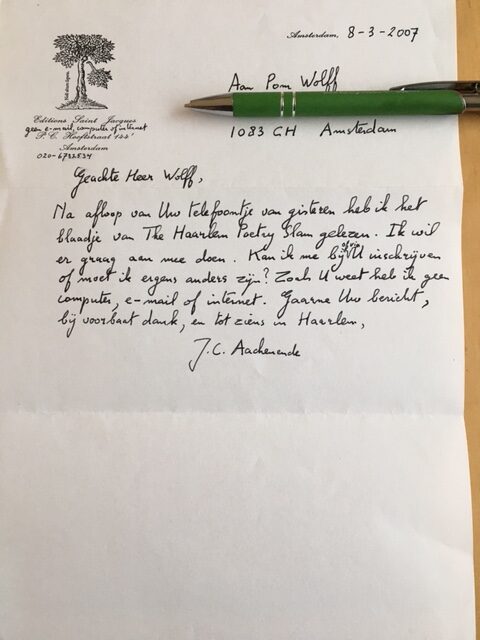 Amsterdam, 8-3-2007
Aan Pom Wolff
1083 CH Amsterdam
Editions Saint Jacques
geen e-mail, computer of internet
P.C. Hooftstraat 144
Amsterdam
020-6722534
Geachte Heer Wolff,
Na afloop van Uw telefoontje van gisteren heb ik het
blaadje van The Haarlem Poetry Slam gelezen. Ik wil
er graag aan mee doen. Kan ik me bij U inschrijven
of moet ik ergens anders zijn? Zoals U weet heb ik geen
computer, e-mail of internet. Gaarne Uw bericht,
bij voorbaat dank, en tot ziens in Haarlem,
J.C. Aachenende